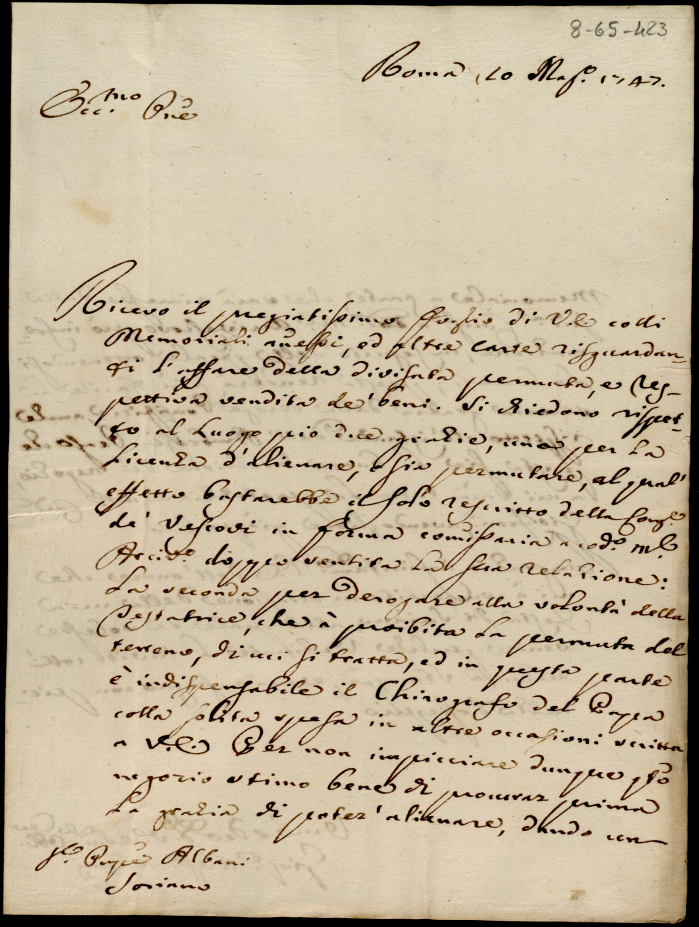 8-65-423
Roma 20 Mag.o 1747.
Ecc.mo Pne
Ricevo il pregiatissimo foglio di V.E. colli
Memoriali annessi, ed altre carte risguardan-
ti l'affare della divisata permuta, e res-
pettiva vendita de' beni. Si chiedono rispet-
to al Luogo pio due grazie, una per la
Licenza d'alienare, o sia permutare, al qual'
effetto bastarebbe il solo rescritto della Cong.e
de' Vescovi in forma comissaria a cod.o M.r
Arciv.o doppo sentita la sua relazione:
La seconda per derogare alla volontà della
Testatrice, che à proibita la permuta del
terreno, di cui si tratta, ed in questa parte
è indispensabile il Chirografo del Papa
colla solita spesa in altre occasioni scritta
a V.E. Per non impicciare dunque q.sto
negozio stimo bene di procurar prima
la grazia di poter' alienare, dando un
Pnpe Albani
Soriano